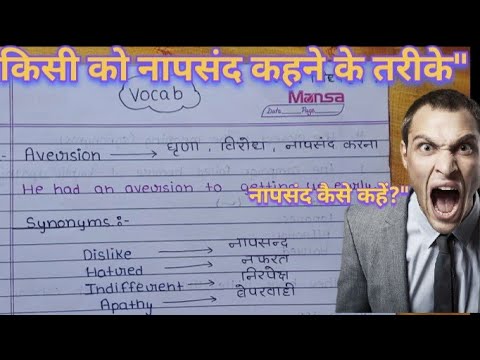 किसी को नापसंद कहने के तरीके"
Vocab
Mansa
Date Page
Aversion → घृणा, विरोध, नापसंद करना
He had an aversion to getting up early
नापसंद कैसे कहें?"
Synonyms:-
Dislike → नापसन्द
Hatred → नफरत
Indifferent → निरपेक्ष
Apathy → बेपरवाही